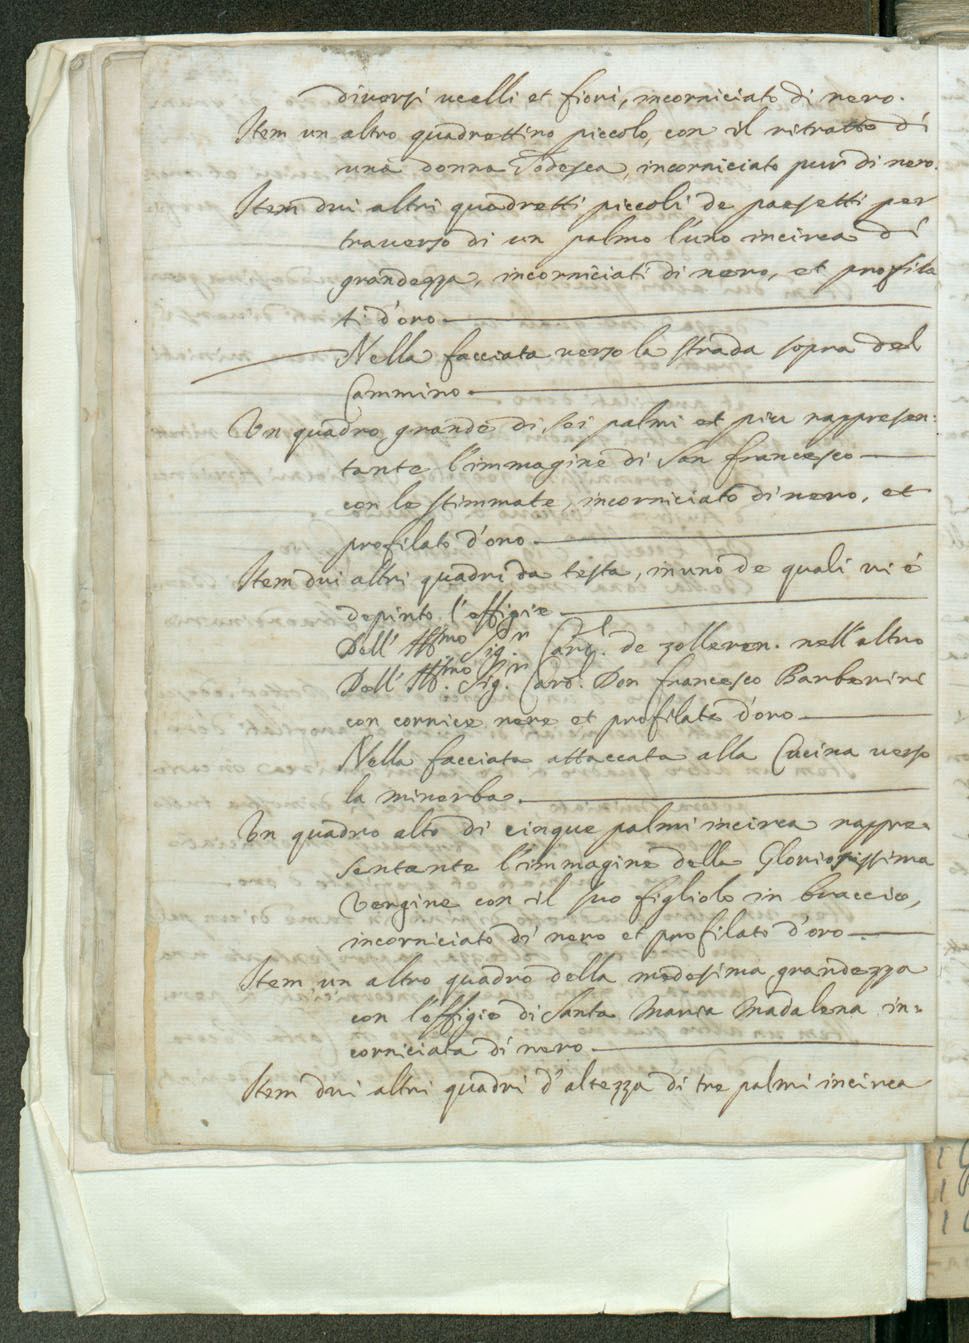 diversi ucelli et fiori, incorniciato di nero.
Item un altro quadrettino piccolo, con il ritratto di
una donna Todesca, incorniciato pur di nero.
Item dui altri quadretti piccoli de paesetti per
traverso di un palmo l'uno incirca di
grandezza, incorniciati di nero, et profila
ti d'oro
Nella facciata verso la strada sopra del
Cammino
Un quadro grande di sei palmi et piu rappresen:
tante l'immagine di San francesco
con le stimmate, incorniciato di nero, et
profilato d'oro
Item dui altri quadri da testa, in uno de quali vi é
depinto l'effigie
Dell' Ill.mo Sig.r Card.l de zolleren. nell'altro
Dell' Ill.mo Sig.r Card. Don francesco Barberini
con cornice nere et profilate d'oro
Nella facciata attaccata alla Cucina verso
la minerba.
Un quadro alto di cinque palmi incirca rappre.
sentante l'immagine della Gloriosissima
Vergine con il suo figliolo in braccio,
incorniciato di nero et profilato d'oro
Item un altro quadro della medesima grandezza
con l'effigie di Santa Maria Madalena in:
corniciata di nero
Item dui altri quadri d'altezza di tre palmi incirca